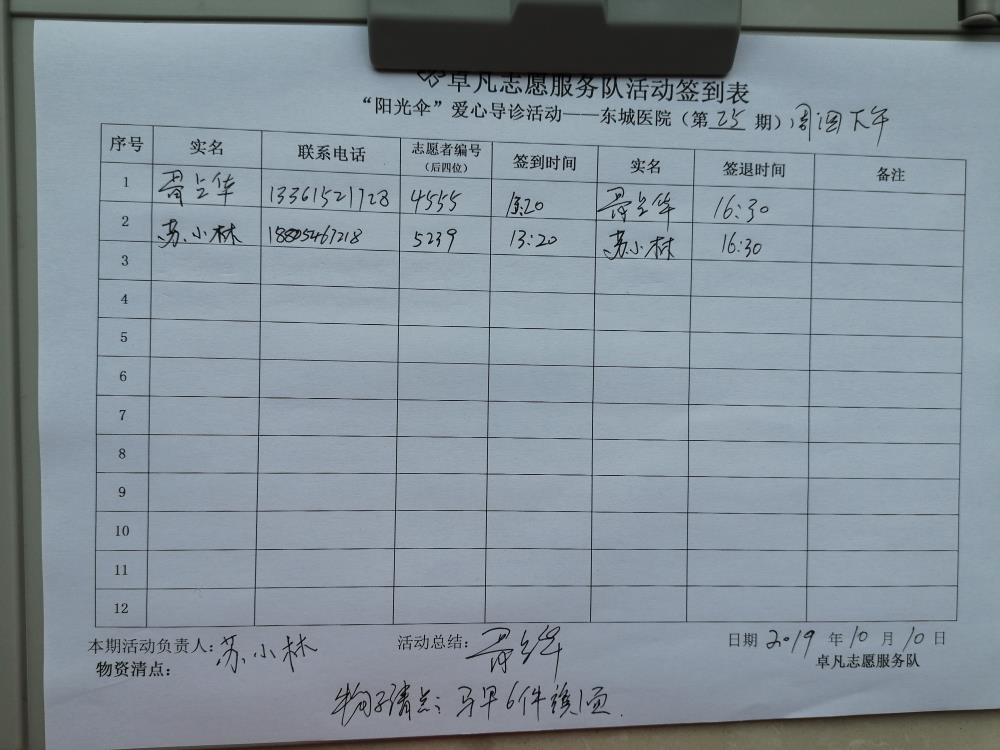 卓凡志愿服务队活动签到表
“阳光伞”爱心导诊活动——东城医院（第 25 期）周四下午
序号 实名 联系电话 志愿者编号（后四位） 签到时间 实名 签退时间 备注
1 13361521728 4555 16:30
2 苏小林 18805467218 5239 13:20 苏小林 16:30
3
4
5
6
7
8
9
10
11
12
本期活动负责人：苏小林 活动总结： 日期 2019 年 10 月 10 日
物资清点： 卓凡志愿服务队
清点：马甲6件